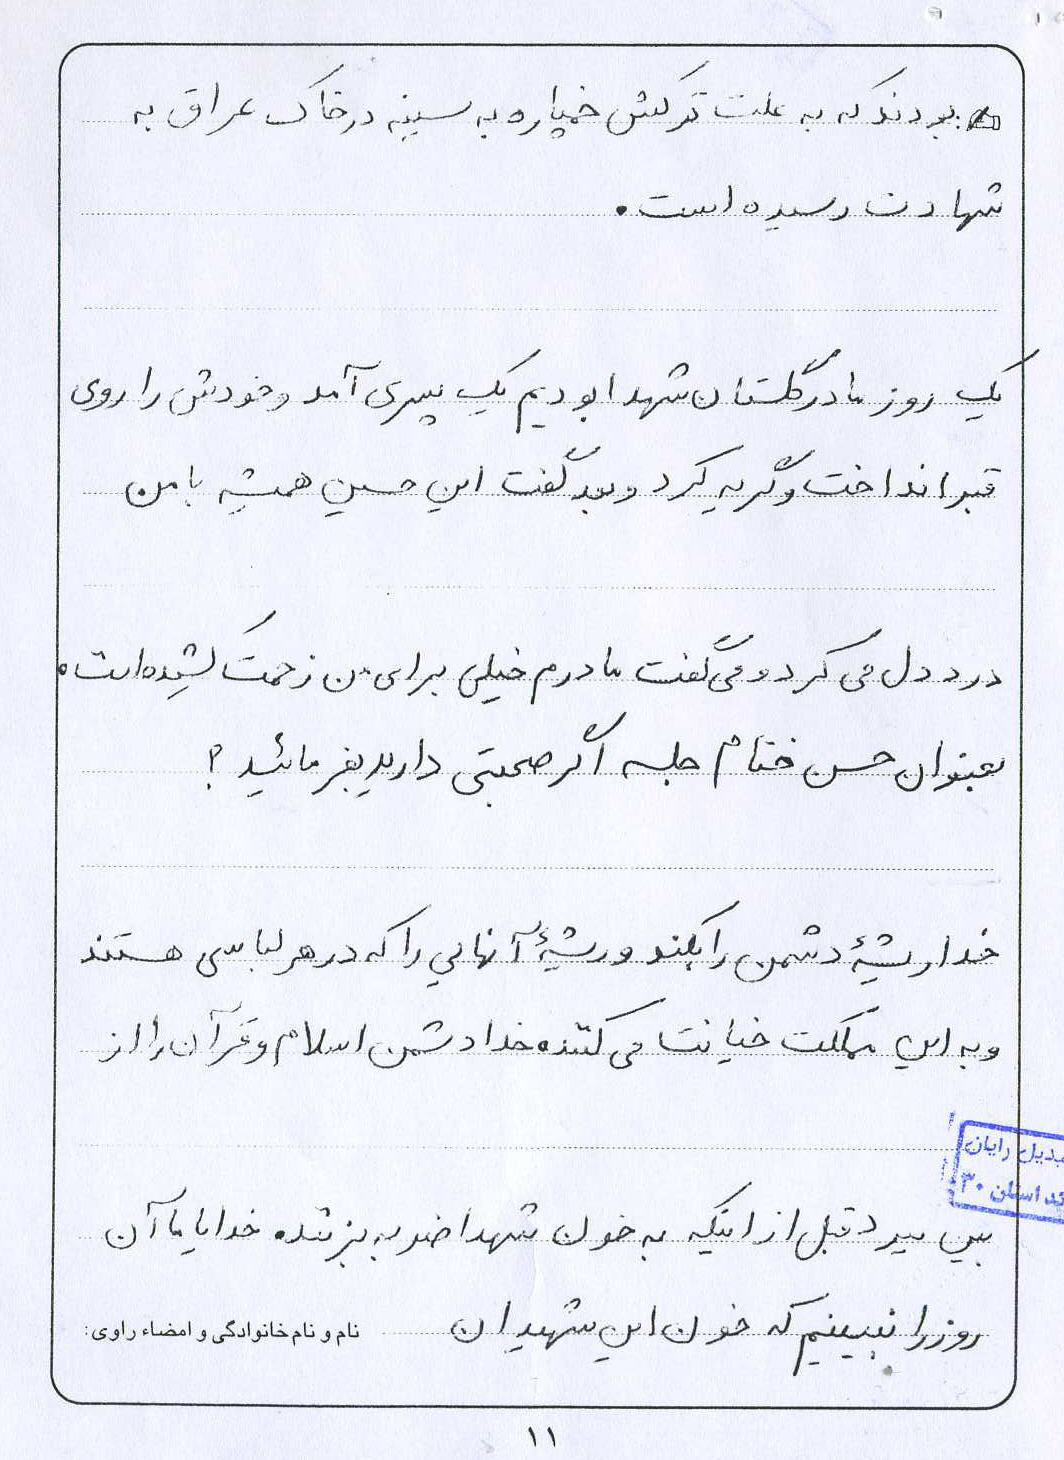 بودند که به علت ترکش خمپاره به سینه در خاک عراق به
شهادت رسیده است.
یک روز ما در گلستان شهدا بودیم یک پسری آمد و خودش را روی
قبر انداخت و گریه کرد و بعد گفت این حسین همیشه با من
درد دل می کرد و می گفت مادرم خیلی برای من زحمت کشیده است.
بعنوان حسن ختام جلسه اگر صحبتی دارید بفرمائید؟
خدا ریشۀ دشمن را بکند و ریشۀ آنهایی را که در هر لباسی هستند
و به این مملکت خیانت می کنند. خدا دشمن اسلام و قرآن را از
بدیل رایان
اسنان ۳۰
بین ببرد قبل از اینکه به خون شهدا ضربه بزنند. خدایا ما آن
روز را نبینیم که خون این شهیدان
نام و نام خانوادگی و امضاء راوی:
۱۱